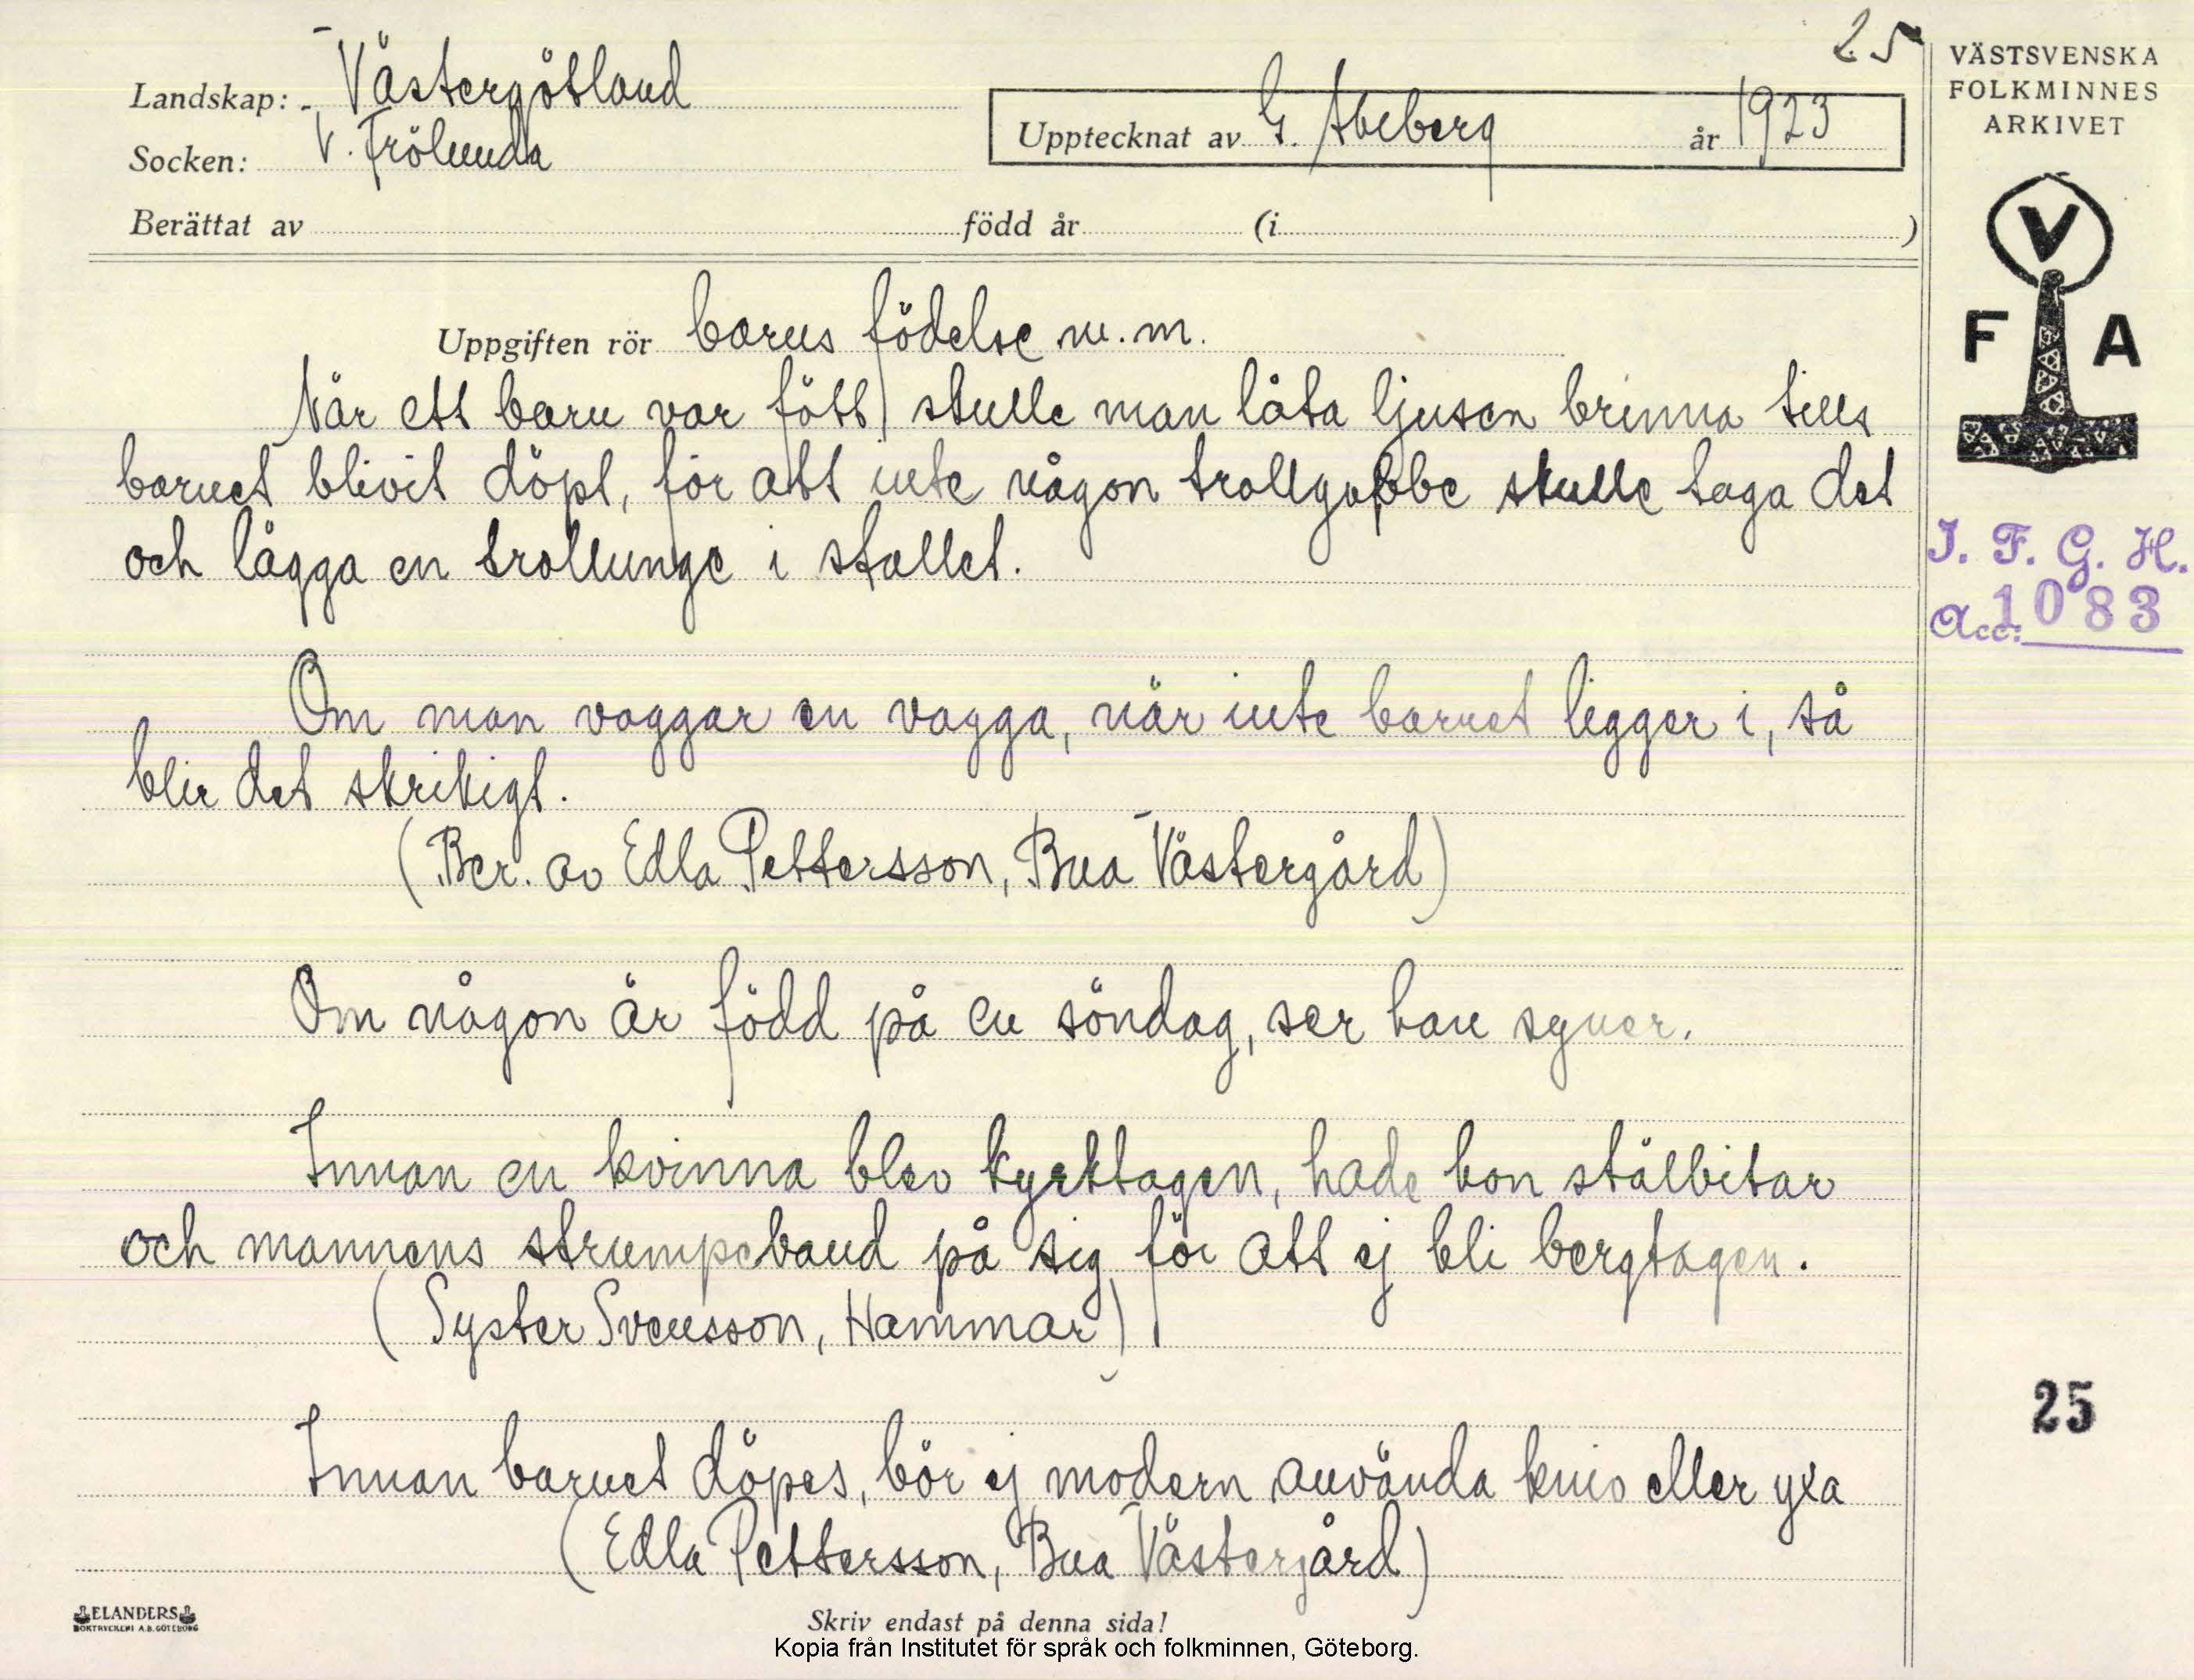 25
Landskap: Västergötland
Socken: V. Frölunda
Upptecknat av G. Abeberg år 1923
Berättat av född år (i )
VÄSTSVENSKA
FOLKMINNES
ARKIVET
V
F A
I. F. G. H.
Acc: 1083
Uppgiften rör barns födelse m.m.
När ett barn var fött, skulle man låta ljusen brinna tills
barnet blivit döpt, för att inte någon trollgubbe skulle taga det
och lägga en trollunge i stället.
Om man vaggar en vagga, när inte barnet ligger i, så
blir det skrikigt.
(Ber. av Edla Pettersson, Bua Västergård)
Om någon är född på en söndag, ser han syner.
Innan en kvinna blev kyrktagen, hade hon stålbitar
och mannens strumpeband på sig för att ej bli bergtagen.
(Syster Svensson, Hammar)
25
Innan barnet döpes, bör ej modern använda kniv eller yxa
(Edla Pettersson, Bua Västergård)
ELANDERS
BOKTRYCKERI A.B. GÖTEBORG
Skriv endast på denna sida!
Kopia från Institutet för språk och folkminnen, Göteborg.